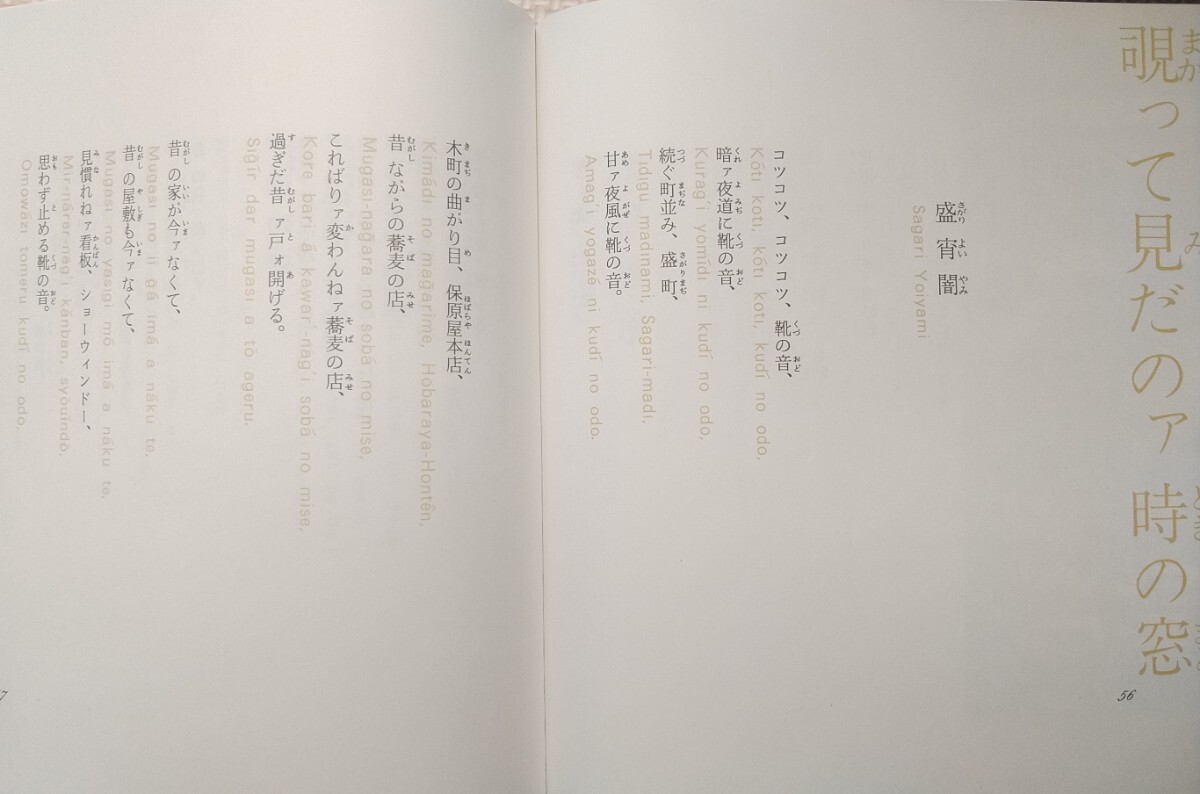 覗って見だのァ時の窓
盛 宵 闇
Sagari Yoiyami
コツコツ、コツコツ、靴の音、
Kóti koti, kóti koti, kudí no odo,
暗ァ夜道に靴の音、
Kurag'i yomídi ni kudí no odo,
続ぐ町並み、盛町、
Tıdıgu madinami, Sagari-madı,
甘ァ夜風に靴の音。
Amag'i yogazé ni kudí no odo.
56
木町の曲がり目、保原屋本店、
Kimádı no mag̃arime, Hobaraya-Hontên,
昔ながらの蕎麦の店、
Mugasi-nag̃ara no sobá no mise,
こればりァ変わんねァ蕎麦の店、
Kore bari á kawar'-nag'i sobá no mise,
過ぎだ昔ァ戸ォ開げる。
Sıg̃ir dar mugasi a tò ageru.
昔の家が今ァなくて、
Mugasi no ii g̃á imá a náku te,
昔の屋敷も今ァなくて、
Mugasi no yasigi mó imá a náku te,
見慣れねァ看板、ショーウィンドー、
Mir-nárer-nag'i kánban, syóuindò,
思わず止める靴の音。
Omowázı tomeru kudí no odo.